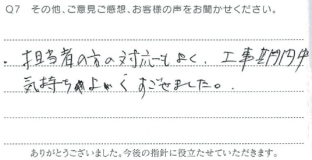 Q7 その他、ご意見ご感想、お客様の声をお聞かせください。
・担当者の方の対応もよく、工事期間中
気持ちよくすごせました。
ありがとうございました。今後の指針に役立たせていただきます。